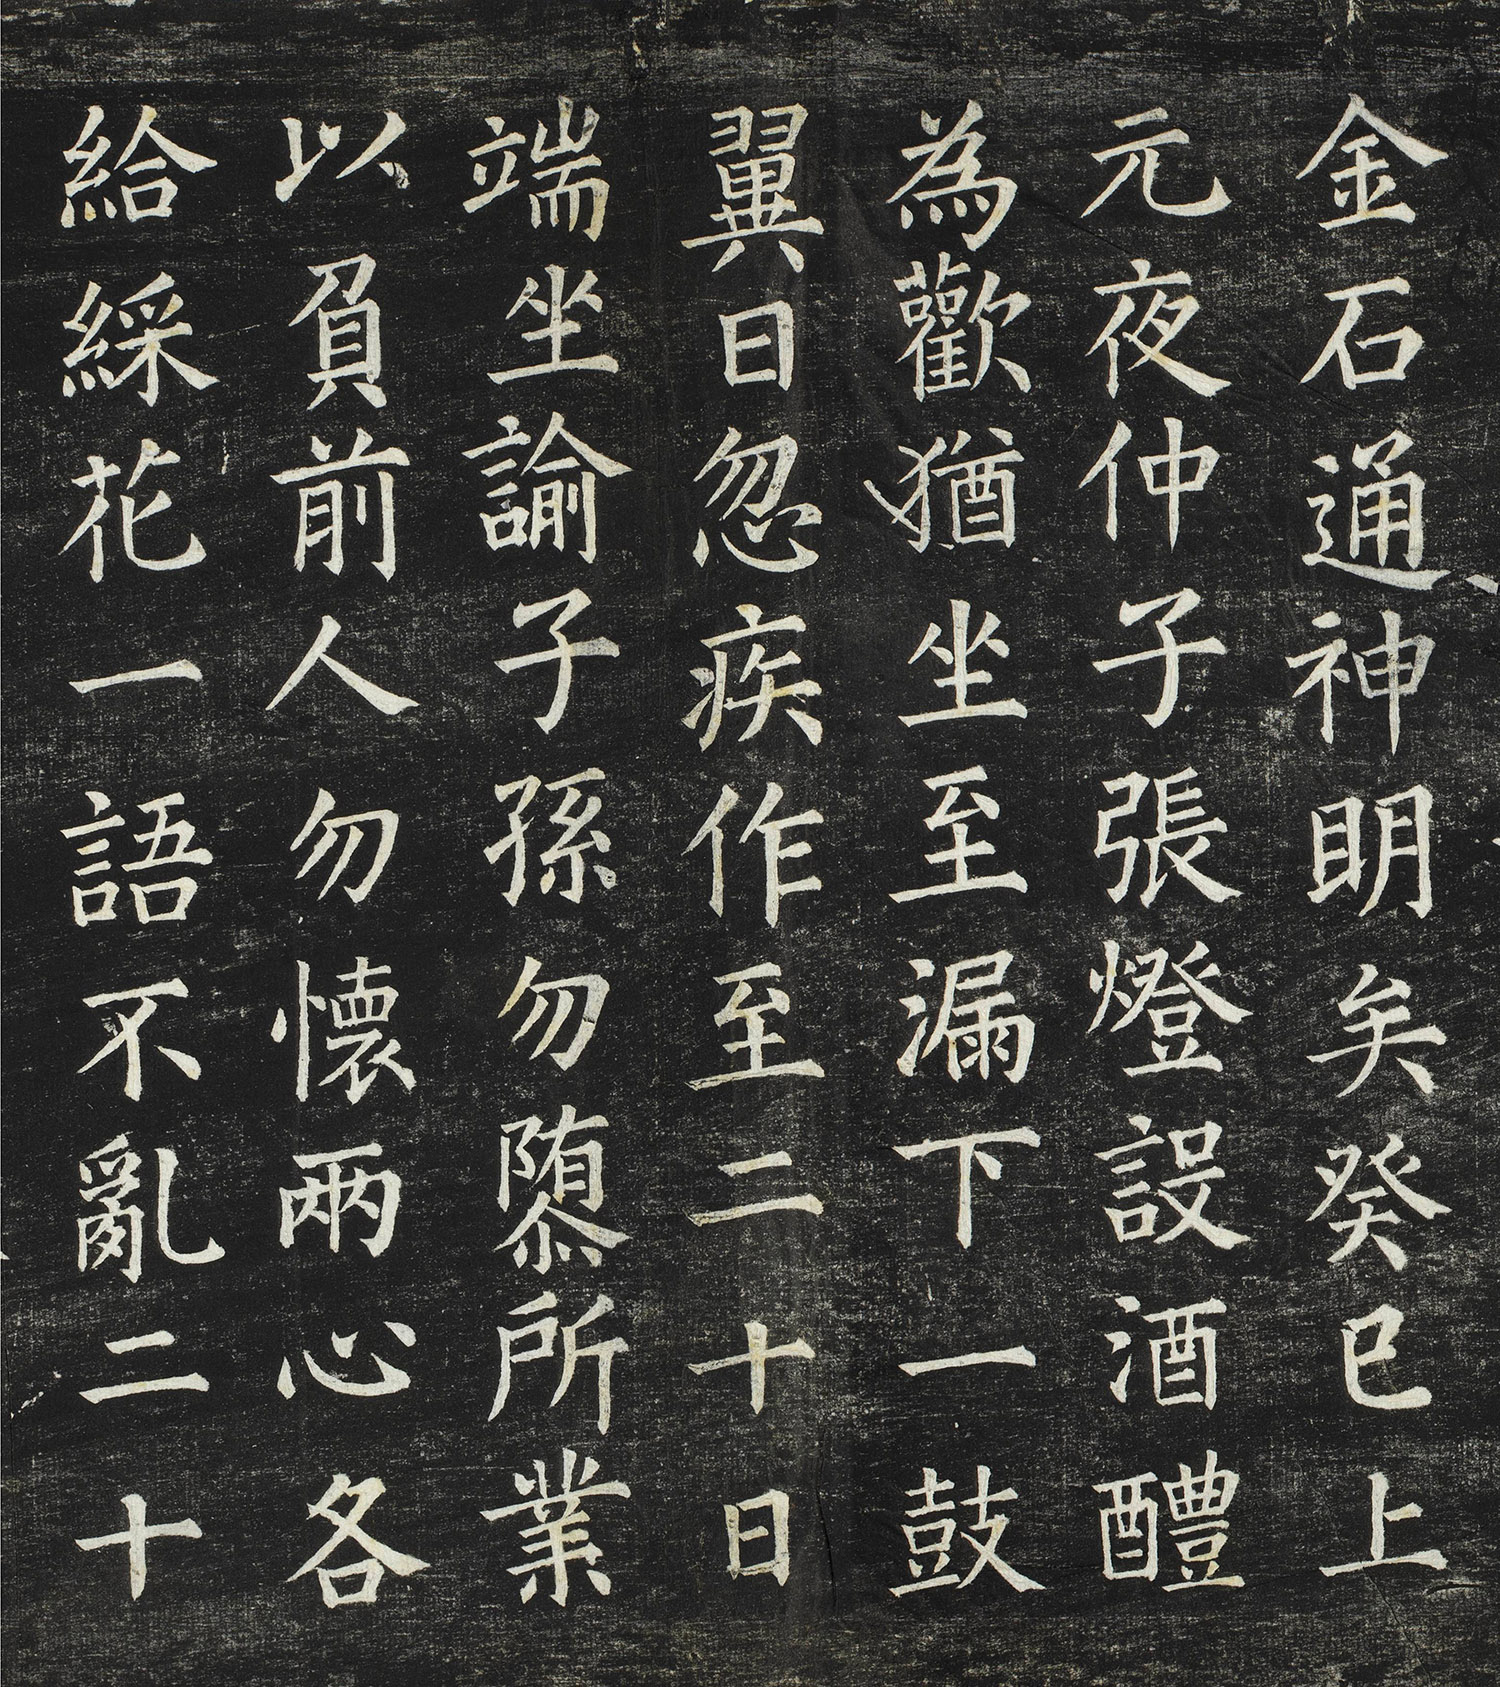 金石通神明矣癸巳上
元夜仲子張燈設酒醴
為歡猶坐至漏下一鼓
翼日忽疾作至二十日
端坐諭子孫勿墮所業
以負前人勿懷兩心各
給綵花一語不亂二十